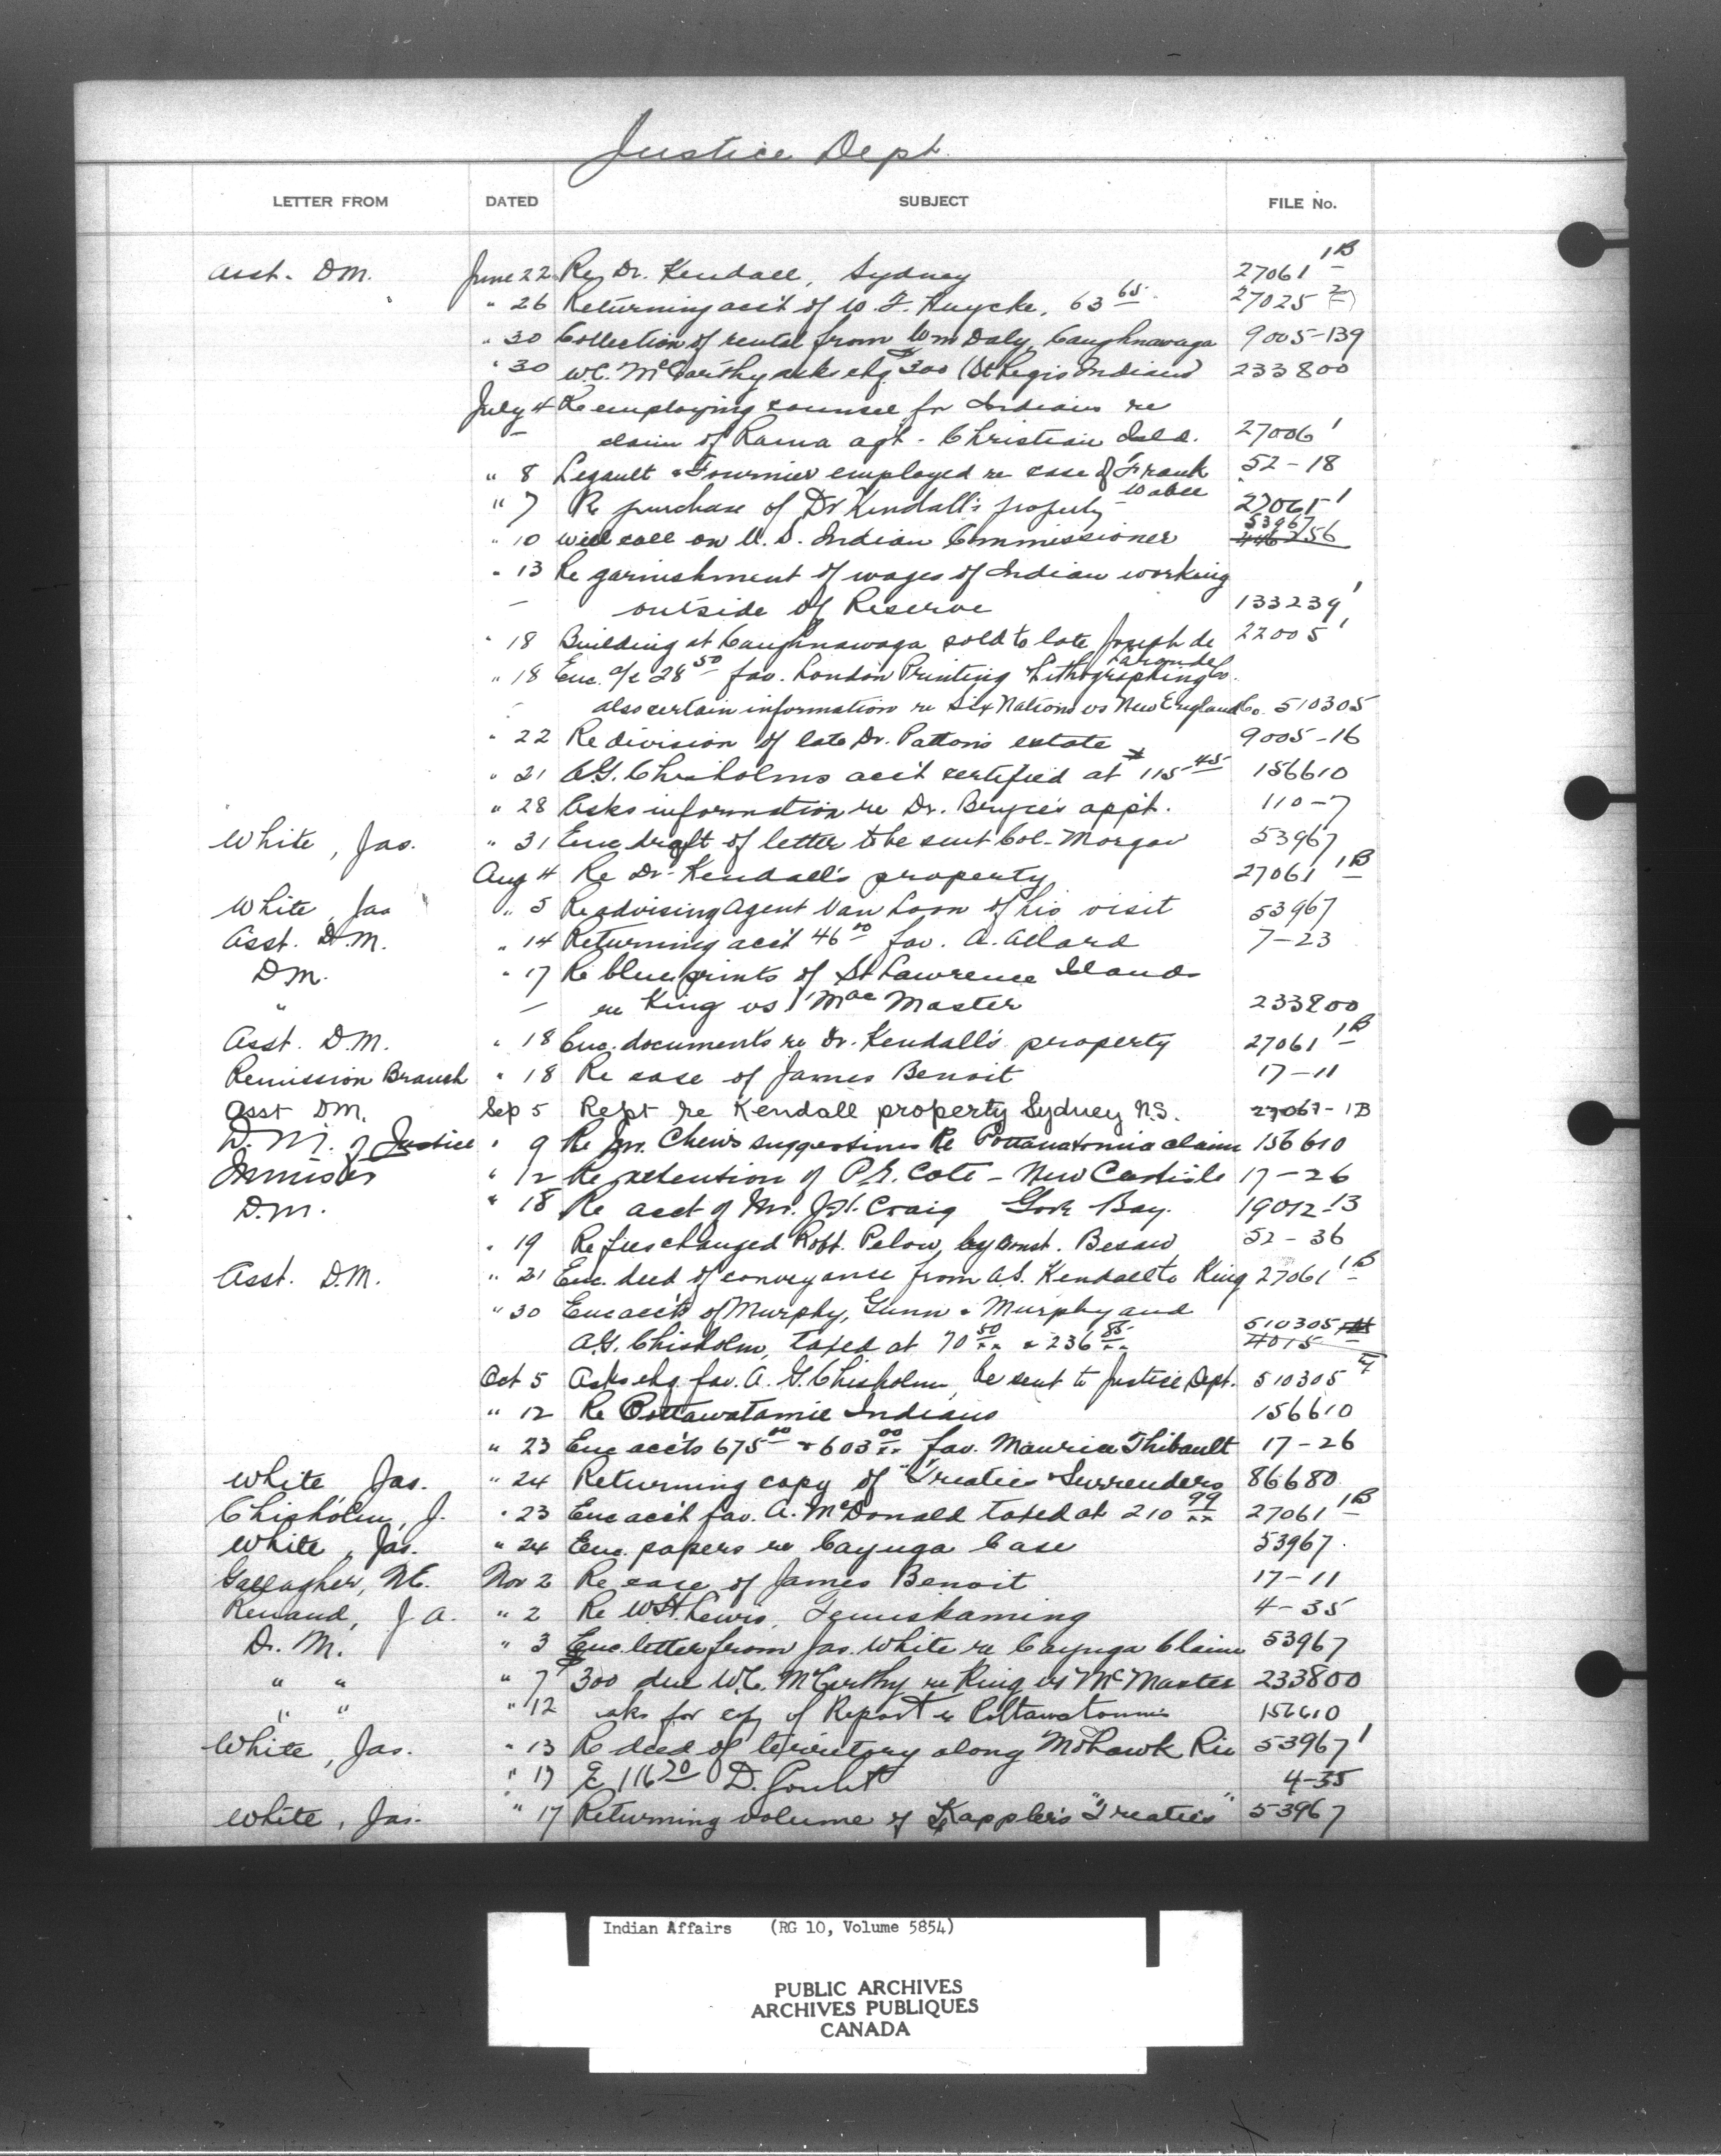 Justice Dept.
LETTER FROM DATED SUBJECT FILE No.
Asst. DM. June 22 Re Dr. Kendall, Sydney 27061 1B
" 26 Returning acc't of W. F. Huycke, 63 65 27025 2
" 30 Collection of rental from Wm Daly, Caughnawaga 9005-139
" 30 W.C. McCarthy asks chq $300 (St Regis Indians) 233800
July 4 Re employing counsel for Indians re
claim of Rama agt. Christian Isld. 27006 1
" 8 Legault & Fournier employed re case of Frank 52-18
Wabee
" 7 Re purchase of Dr Kendall's property 27061 1
53967
" 10 Will call on U.S. Indian Commissioner
" 13 Re garnishment of wages of Indian working
outside of Reserve 133239 1
" 18 Building at Caughnawaga sold to late Joseph de 22005 1
Laronde
" 18 Enc. a/c 28 50 fav. London Printing & Lithographing Co.
also certain information re Six Nations vs New England Co. 510305
" 22 Re division of late Dr. Patton's estate 9005-16
" 21 A.G. Chisholms acc't certified at $115 45 156610
" 28 Asks information re Dr. Bryce's app't. 110-7
White, Jas. " 31 Enc draft of letter to be sent Col. Morgan 53967
Aug 4 Re Dr. Kendall's property 27061 1B
White, Jas " 5 Re advising Agent Van Loon of his visit 53967
Asst. D.M. " 14 Returning acc't 46 00 fav. A. Allard 7-23
DM. " 17 Re blue prints of St Lawrence Islands
" re King vs MacMaster 233800
Asst. D.M. " 18 Enc. documents re Dr. Kendall's property 27061 1B
Remission Branch " 18 Re case of James Benoit 17-11
Asst DM. Sep 5 Rept re Kendall property Sydney N.S. 27061-1B
D. M. of Justice " 9 Re Mr. Chew's suggestions Re Pottawatomie claim 156610
Minister " 12 Re retention of P.E. Cote - New Carlisle 17-26
D.M. " 18 Re acct of Mr. J.H. Craig Gore Bay. 19012-13
" 19 Re fees charged Robt. Pelow, by Const. Besaw 52-36
Asst. D.M. " 21 Enc. deed of conveyance from A.S. Kendall to King 27061 1B
" 30 Enc acc'ts of Murphy, Gunn & Murphy and
A.G. Chisholm, taxed at 70 50 & 236 85 510305
4015
Oct 5 Asks chq fav. A. G. Chisholm, be sent to Justice Dept. 510305
" 12 Re Pottawatamie Indians 156610
" 23 Enc acc'ts 675 00 & 603 00 fav. Maurice Thibault 17-26
White, Jas. " 24 Returning copy of "Treaties & Surrenders 86680
Chisholm, J. " 23 Enc acc't fav. A. McDonald taxed at 210 99 27061 1B
White, Jas. " 24 Enc. papers re Cayuga Case 53967
Gallagher, N.E. Nov 2 Re case of James Benoit 17-11
Renaud, J A. " 2 Re W.H. Lewis, Temiskaming 4-35
D. M. " 3 Enc. letter from Jas. White re Cayuga Claim 53967
" " " 7 $300 due W.C. McCarthy re King vs McMaster 233800
" " " 12 asks for copy of Report re Pottawatomis 156610
White, Jas. " 13 Re deed of territory along Mohawk Riv 53967 1
" 17 116 70 D. 4-35
White, Jas. " 17 Returning volume of Kappler's "Treaties" 53967
Indian Affairs (RG 10, Volume 5854)
PUBLIC ARCHIVES
ARCHIVES PUBLIQUES
CANADA